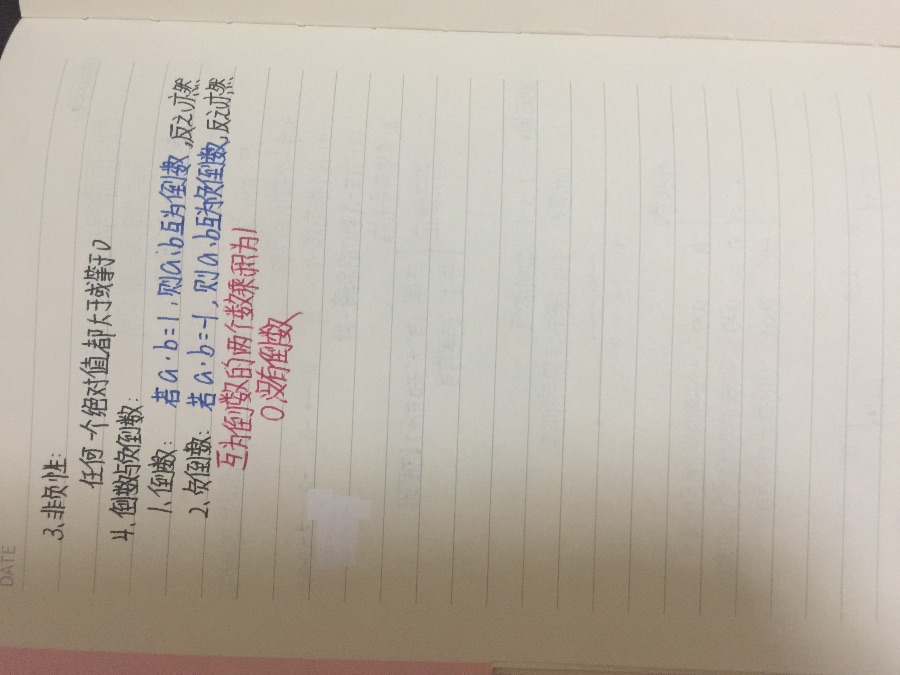 DATE
3、非负性:
任何一个绝对值都大于或等于0
4、倒数与负倒数:
1、倒数: 若a·b=1,则a、b互为倒数,反之亦然
2、负倒数: 若a·b=-1,则a、b互为负倒数,反之亦然
互为倒数的两个数乘积为1
0没有倒数